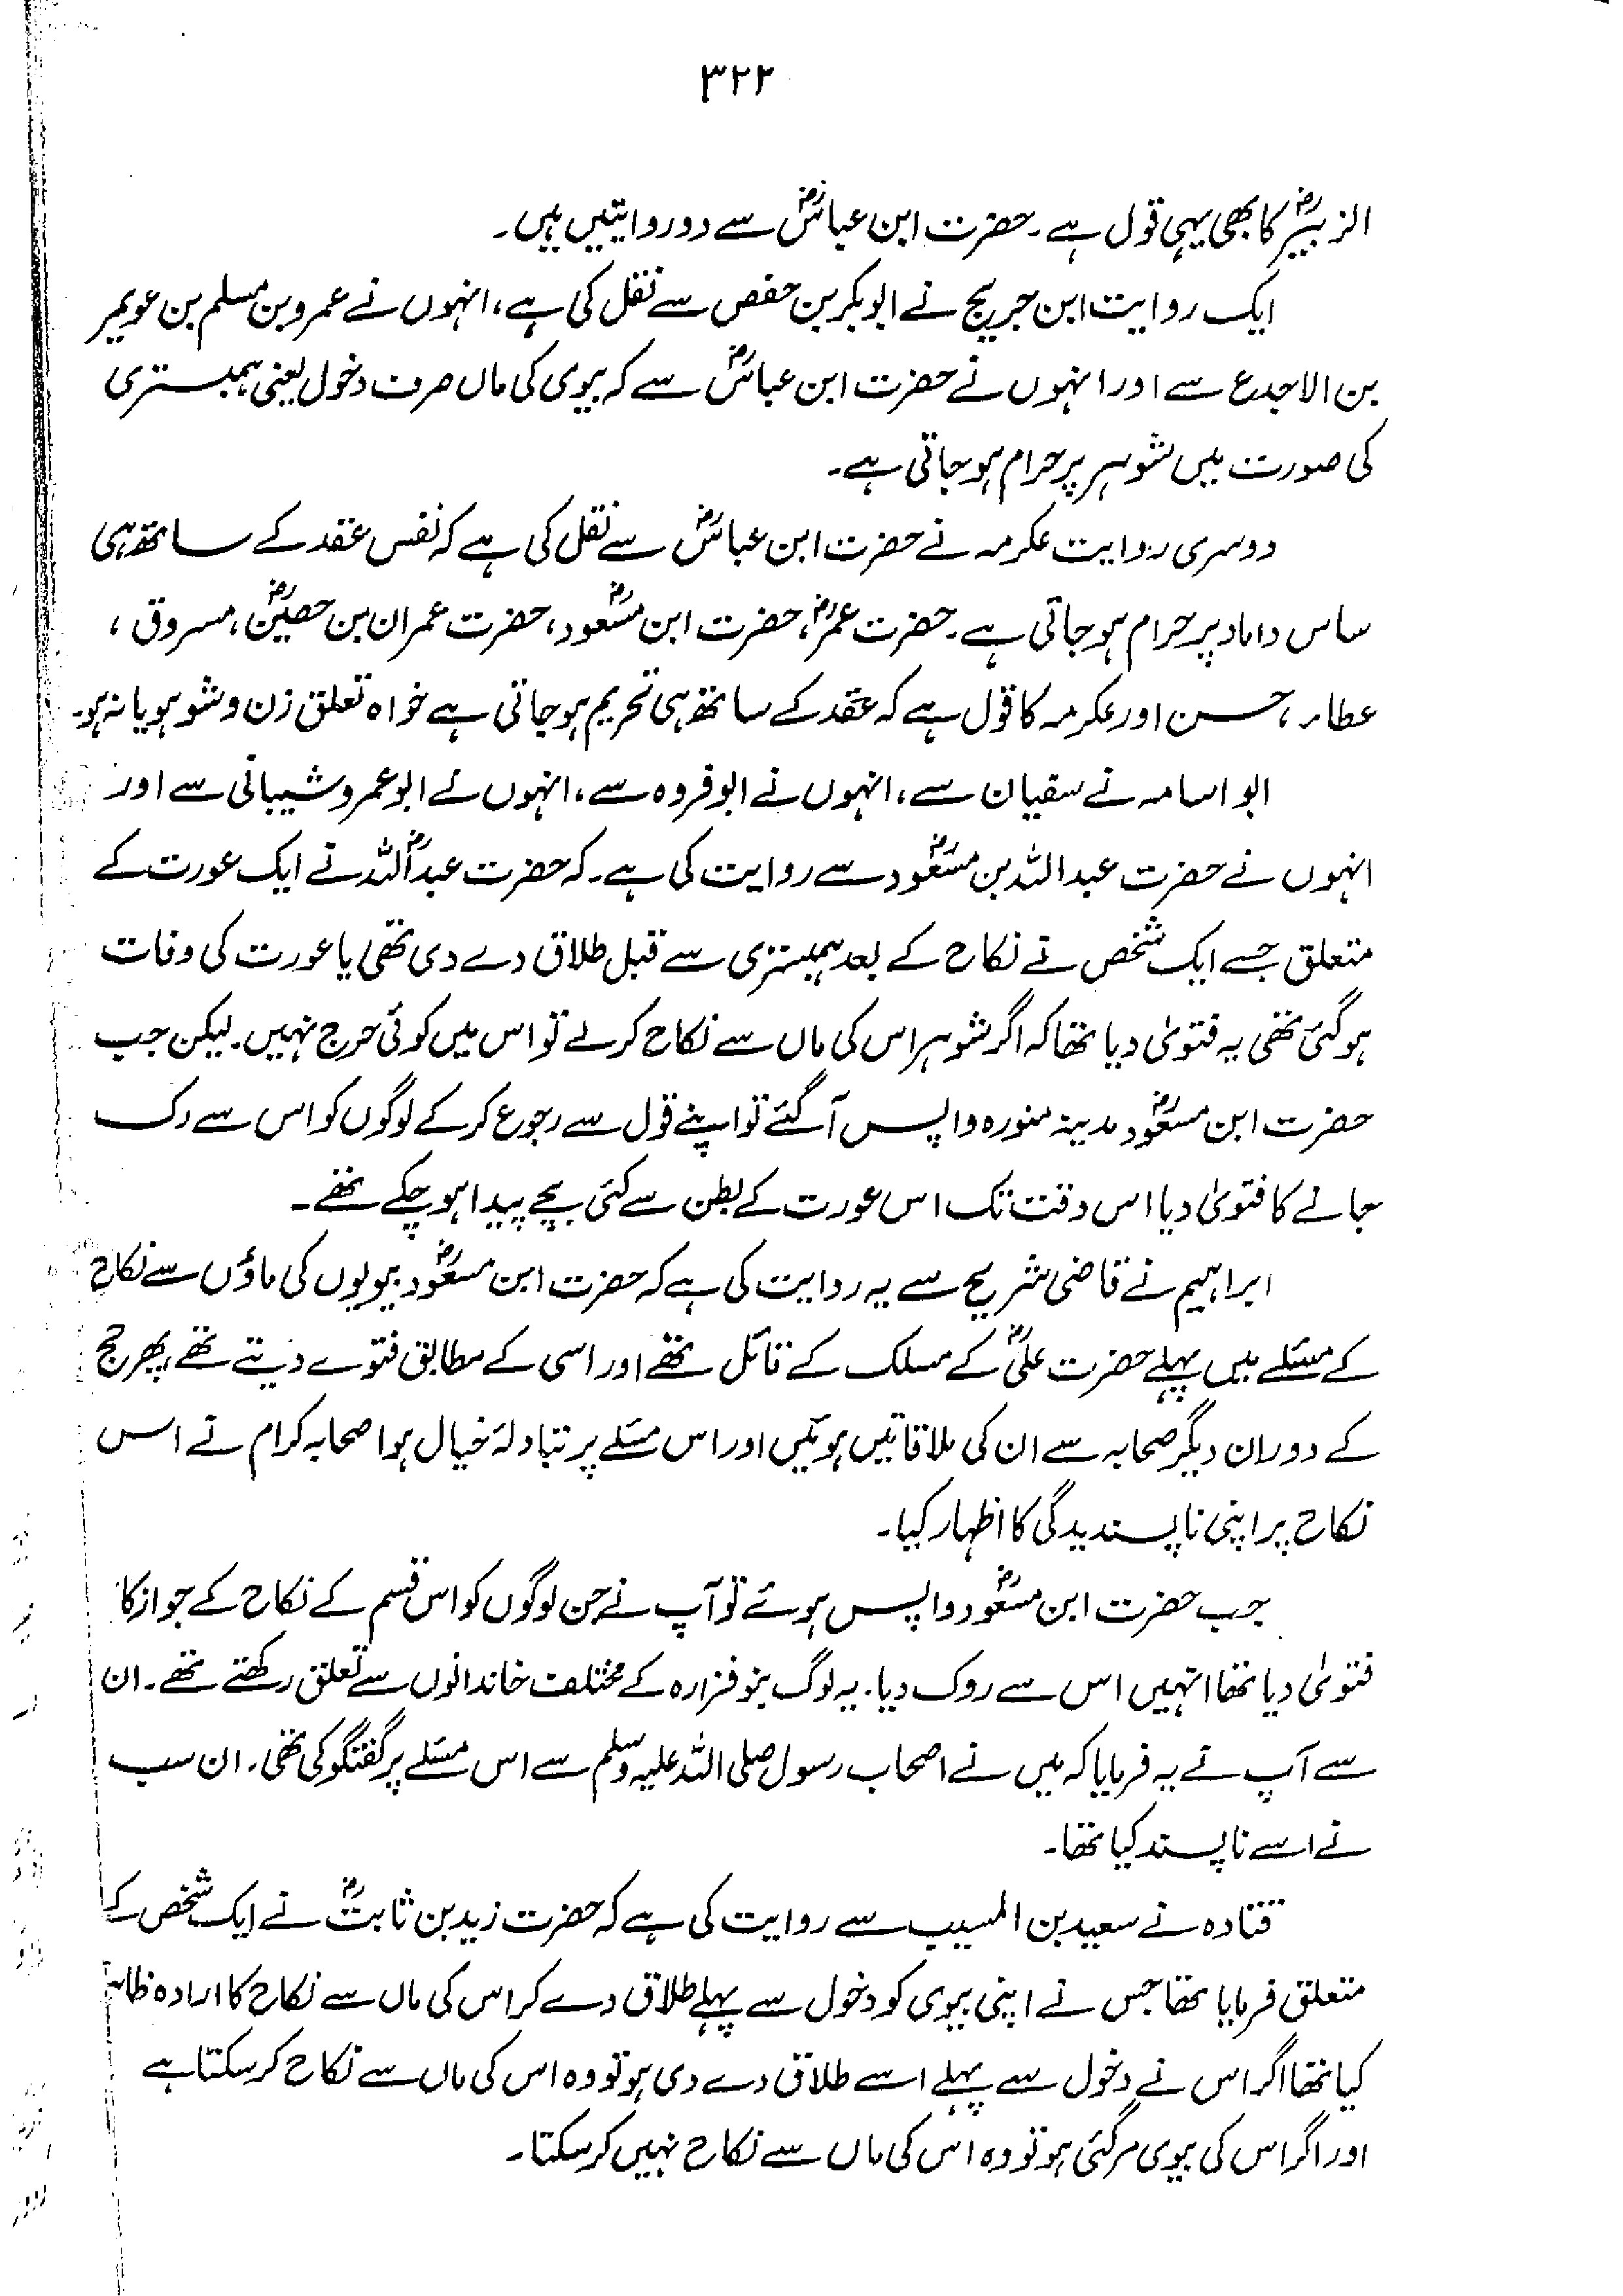 ۳۲۲
الزبیرؓ کا بھی یہی قول ہے۔ حضرت ابن عباسؓ سے دو روایتیں ہیں۔
ایک روایت ابن جریج نے ابوبکر بن حفص سے نقل کی ہے، انہوں نے عمرو بن مسلم بن عویمر
بن الاجدع سے اور انہوں نے حضرت ابن عباسؓ سے کہ بیوی کی ماں صرف دخول یعنی ہمبستری
کی صورت میں شوہر پر حرام ہو جاتی ہے۔
دوسری روایت عکرمہ نے حضرت ابن عباسؓ سے نقل کی ہے کہ نفس عقد کے ساتھ ہی
ساس داماد پر حرام ہو جاتی ہے۔ حضرت عمرؓ، حضرت ابن مسعودؓ، حضرت عمران بن حصینؓ، مسروق،
عطاء، حسن اور عکرمہ کا قول ہے کہ عقد کے ساتھ ہی تحریم ہو جاتی ہے خواہ تعلق زن و شو ہو یا نہ ہو۔
ابو اسامہ نے سفیان سے، انہوں نے ابو فروہ سے، انہوں نے ابو عمرو شیبانی سے اور
انہوں نے حضرت عبداللہ بن مسعودؓ سے روایت کی ہے۔ کہ حضرت عبداللہؓ نے ایک عورت کے
متعلق جسے ایک شخص نے نکاح کے بعد ہمبستری سے قبل طلاق دے دی تھی یا عورت کی وفات
ہو گئی تھی یہ فتویٰ دیا تھا کہ اگر شوہر اس کی ماں سے نکاح کر لے تو اس میں کوئی حرج نہیں۔ لیکن جب
حضرت ابن مسعودؓ مدینہ منورہ واپس آگئے تو اپنے قول سے رجوع کر کے لوگوں کو اس سے رک
جانے کا فتویٰ دیا اس وقت تک اس عورت کے بطن سے کئی بچے پیدا ہو چکے تھے۔
ابراہیم نے قاضی شریح سے یہ روایت کی ہے کہ حضرت ابن مسعودؓ بیویوں کی ماؤں سے نکاح
کے مسئلے میں پہلے حضرت علیؓ کے مسلک کے قائل تھے اور اسی کے مطابق فتوے دیتے تھے۔ پھر حج
کے دوران دیگر صحابہ سے ان کی ملاقاتیں ہوئیں اور اس مسئلے پر تبادلۂ خیال ہوا صحابہ کرام نے اس
نکاح پر اپنی ناپسندیدگی کا اظہار کیا۔
جب حضرت ابن مسعودؓ واپس ہوئے تو آپ نے جن لوگوں کو اس قسم کے نکاح کے جواز کا
فتویٰ دیا تھا انہیں اس سے روک دیا۔ یہ لوگ بنو فزارہ کے مختلف خاندانوں سے تعلق رکھتے تھے۔ ان
سے آپ نے یہ فرمایا کہ میں نے اصحاب رسول صلی اللہ علیہ وسلم سے اس مسئلے پر گفتگو کی تھی۔ ان سب
نے اسے ناپسند کیا تھا۔
قتادہ نے سعید بن المسیب سے روایت کی ہے کہ حضرت زید بن ثابتؓ نے ایک شخص کے
متعلق فرمایا تھا جس نے اپنی بیوی کو دخول سے پہلے طلاق دے کر اس کی ماں سے نکاح کا ارادہ ظاہر
کیا تھا اگر اس نے دخول سے پہلے اسے طلاق دے دی ہو تو وہ اس کی ماں سے نکاح کر سکتا ہے
اور اگر اس کی بیوی مر گئی ہو تو وہ اس کی ماں سے نکاح نہیں کر سکتا۔